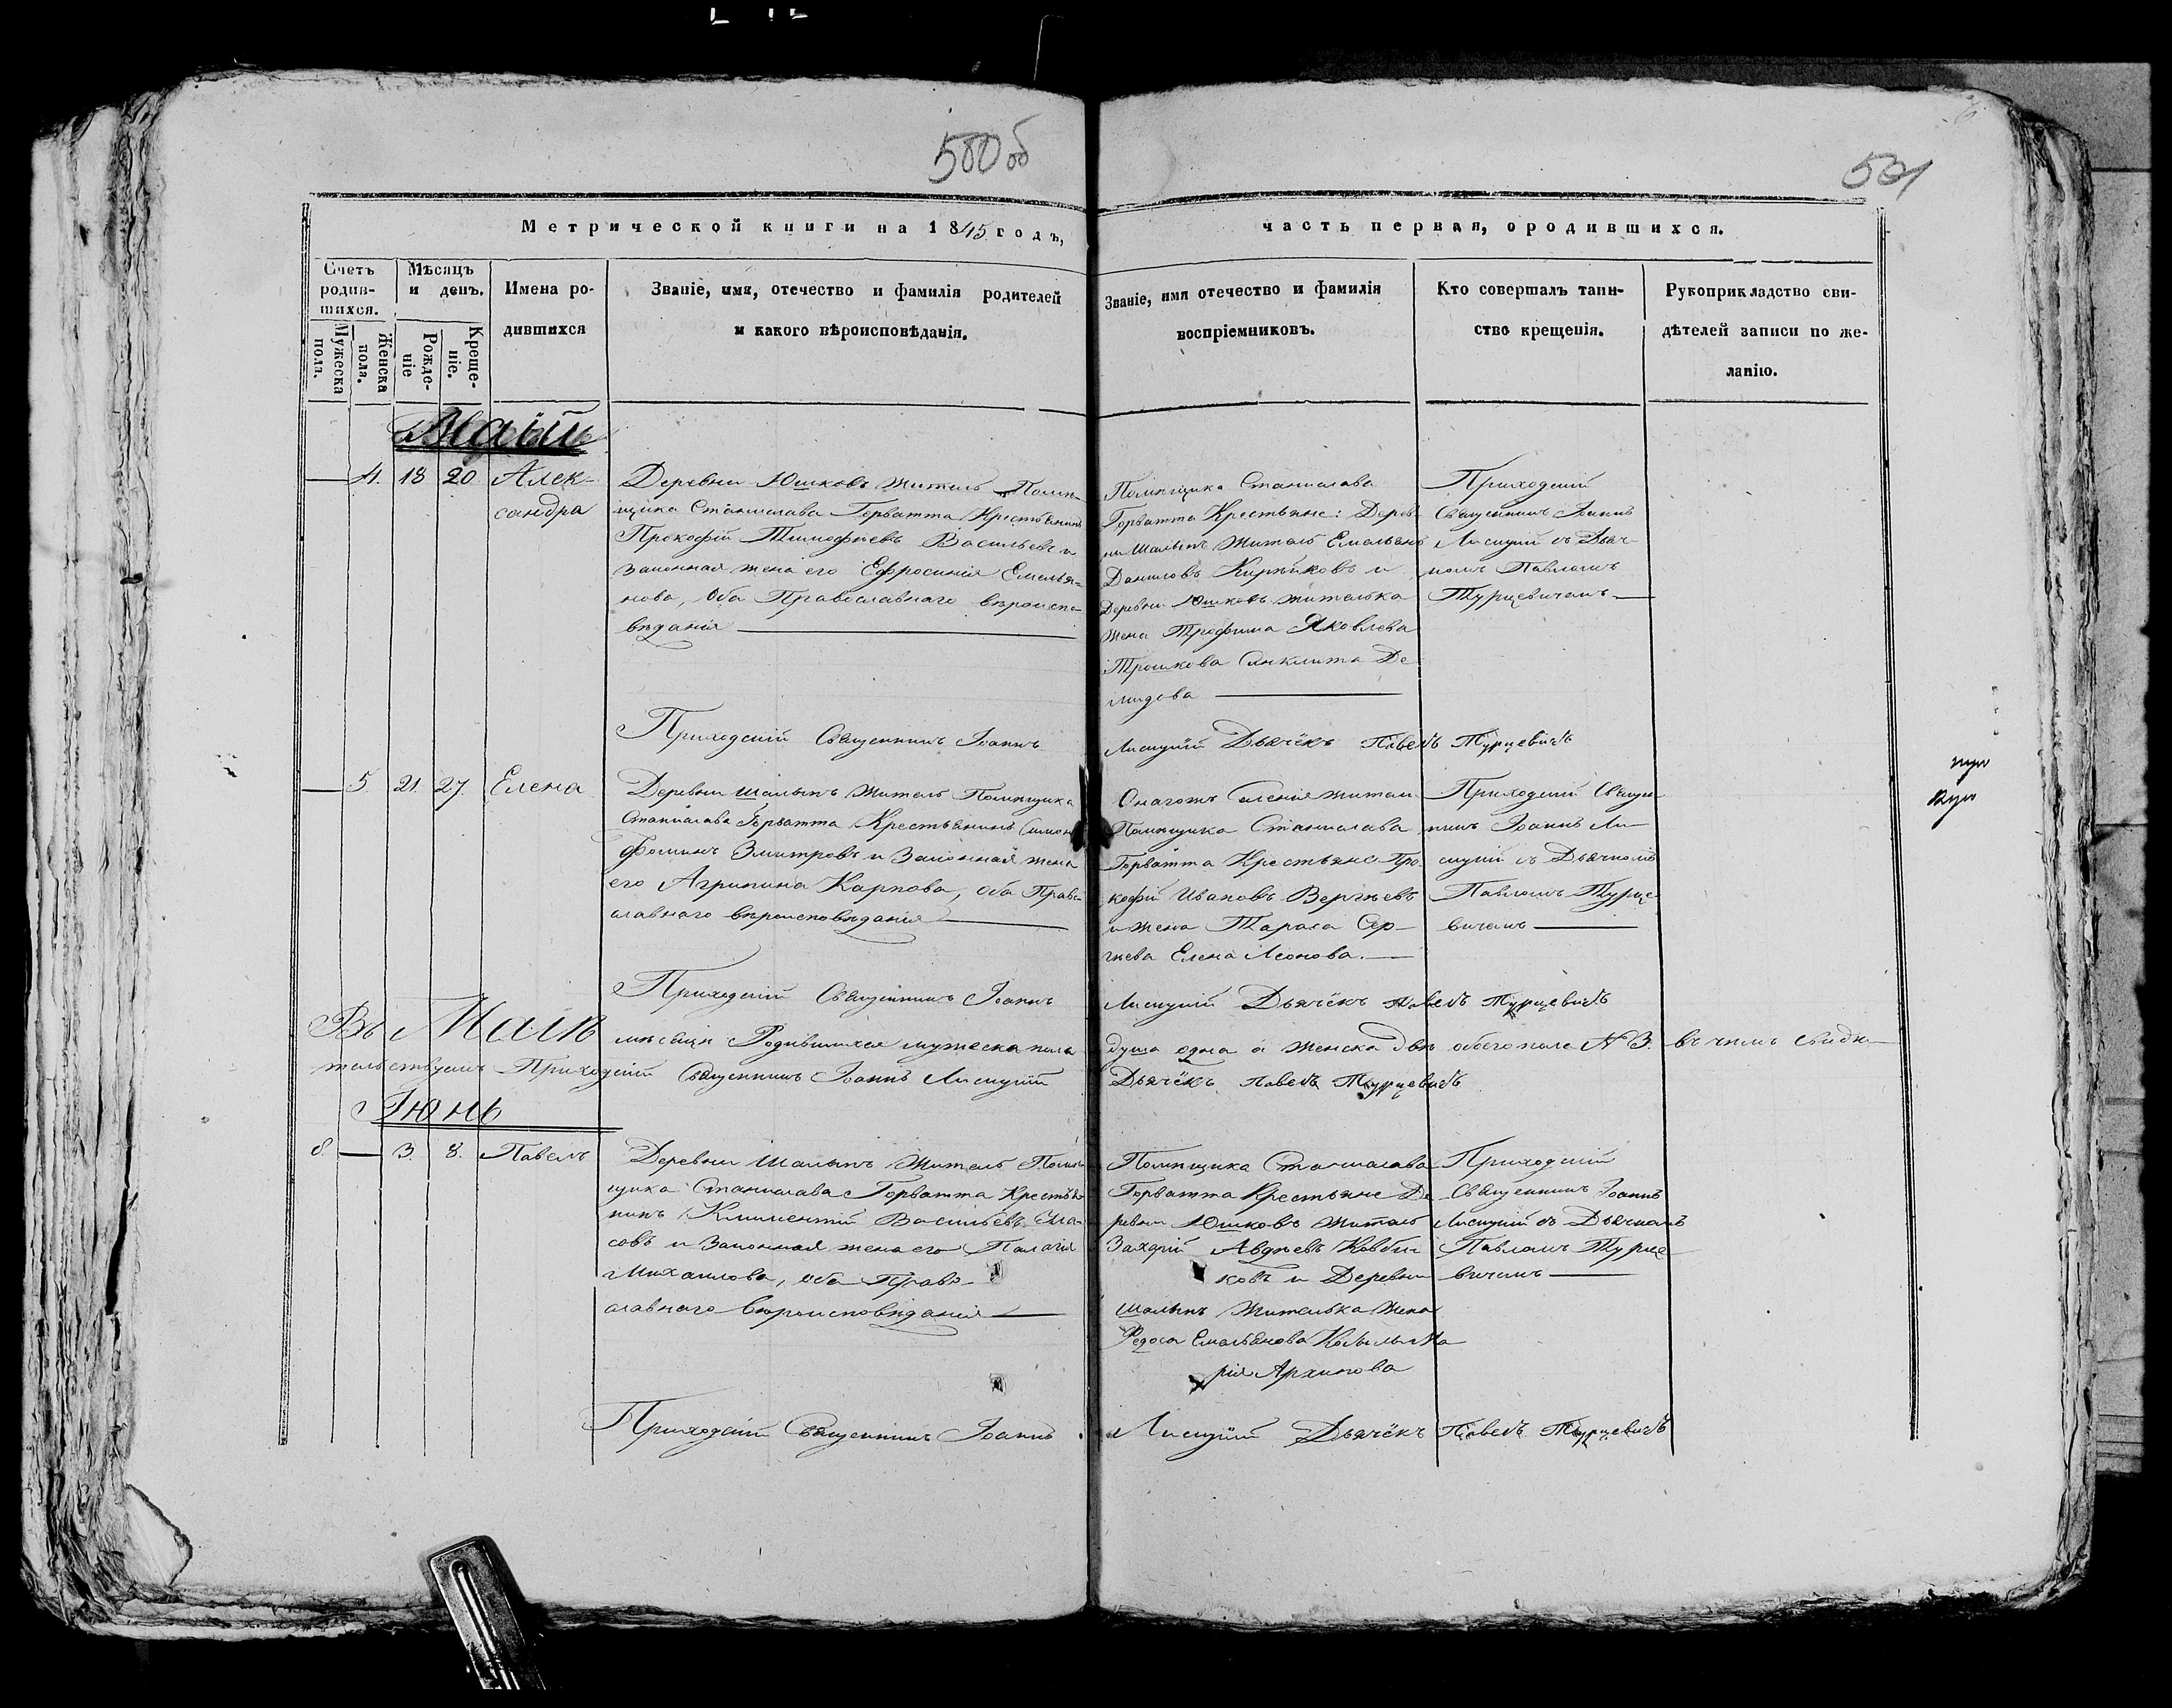 500об
501
Метрической книги на 1845 годъ,
часть первая, ородившихся.
Счетъ родив-шихся.
Мужеска пола.
Женска пола.
Мѣсяцъ и день.
Рожде-ніе
Креще-ніе.
Имена ро-
дившихся
Званіе, имя, отечество и фамилія родителей
и какого вѣроисповѣданія.
Званіе, имя отечество и фамилія
воспріемниковъ.
Кто совершалъ таин-
ство крещенія.
Рукоприкладство сви-
дѣтелей записи по же-
ланію.
Маій
— 4. 18 20 Алек-
сандра
Деревни Юшковъ житель Помѣ-
щика Станислава Горватта Крестьянинъ
Прокофій Тимофѣевъ Васильевъ и
законная жена его Ефросинія Емелья-
нова, оба Православнаго вѣроиспо-
вѣданія
Помѣщика Станислава
Горватта Крестьяне: Дерев-
ни Шалыпъ житель Емельянъ
Даниловъ Кирѣиковъ и
Деревни Юшковъ жителька
жена Трофима Яковлева
Трошкова Анклита Де-
мидова
Приходскій
Священникъ Іоаннъ
Лисицкій съ Дьяч-
комъ Павломъ
Турцевичемъ
Приходскій Священникъ Іоаннъ
Лисицкій Дьячёкъ Павелъ Турцевичъ
— 5. 21. 27. Елена
Деревни Шалыпъ житель Помѣщика
Станислава Горватта Крестьянинъ Симонъ
Фоминъ Змитровъ и законная жена
его Агрипина Карпова, оба Право-
славнаго вѣроисповѣданія
Онагожъ селенія жители
Помѣщика Станислава
Горватта Крестьяне Про-
кофій Ивановъ Вергѣевъ
и жена Тараса Сер-
гѣева Елена Леонова.
Приходскій Священ-
никъ Іоаннъ Ли-
сицкій съ Дьячкомъ
Павломъ Турце-
вичемъ
Приходскій Священникъ Іоаннъ
Лисицкій Дьячёкъ Павелъ Турцевичъ
Въ Маіѣ мѣсяцѣ Родившихся мужеска пола
душа одна а женска двѣ обоего пола № 3. въ чемъ свидѣ-
тельствуемъ Приходскій Священникъ Іоаннъ Лисицкій
Дьячёкъ Павелъ Турцевичъ
Іюнь
8. — 3. 8. Павелъ
Деревни Шалыпъ житель Помѣ-
щика Станислава Горватта Крестья-
нинъ Климентій Васильевъ
совъ и законная жена его Палагія
Михаилова, оба Право-
славнаго вѣроисповѣданія
Помѣщика Станислава
Горватта Крестьяне Де-
ревни Юшковъ житель
Захарій Авдѣевъ Ковби-
ковъ и Деревни
Шалыпъ жителька жена
Федоса Емельянова Ма-
рія Архипова
Приходскій
Священникъ Іоаннъ
Лисицкій съ Дьячкомъ
Павломъ Турце-
вичемъ
Приходскій Священникъ Іоаннъ
Лисицкій Дьячёкъ Павелъ Турцевичъ